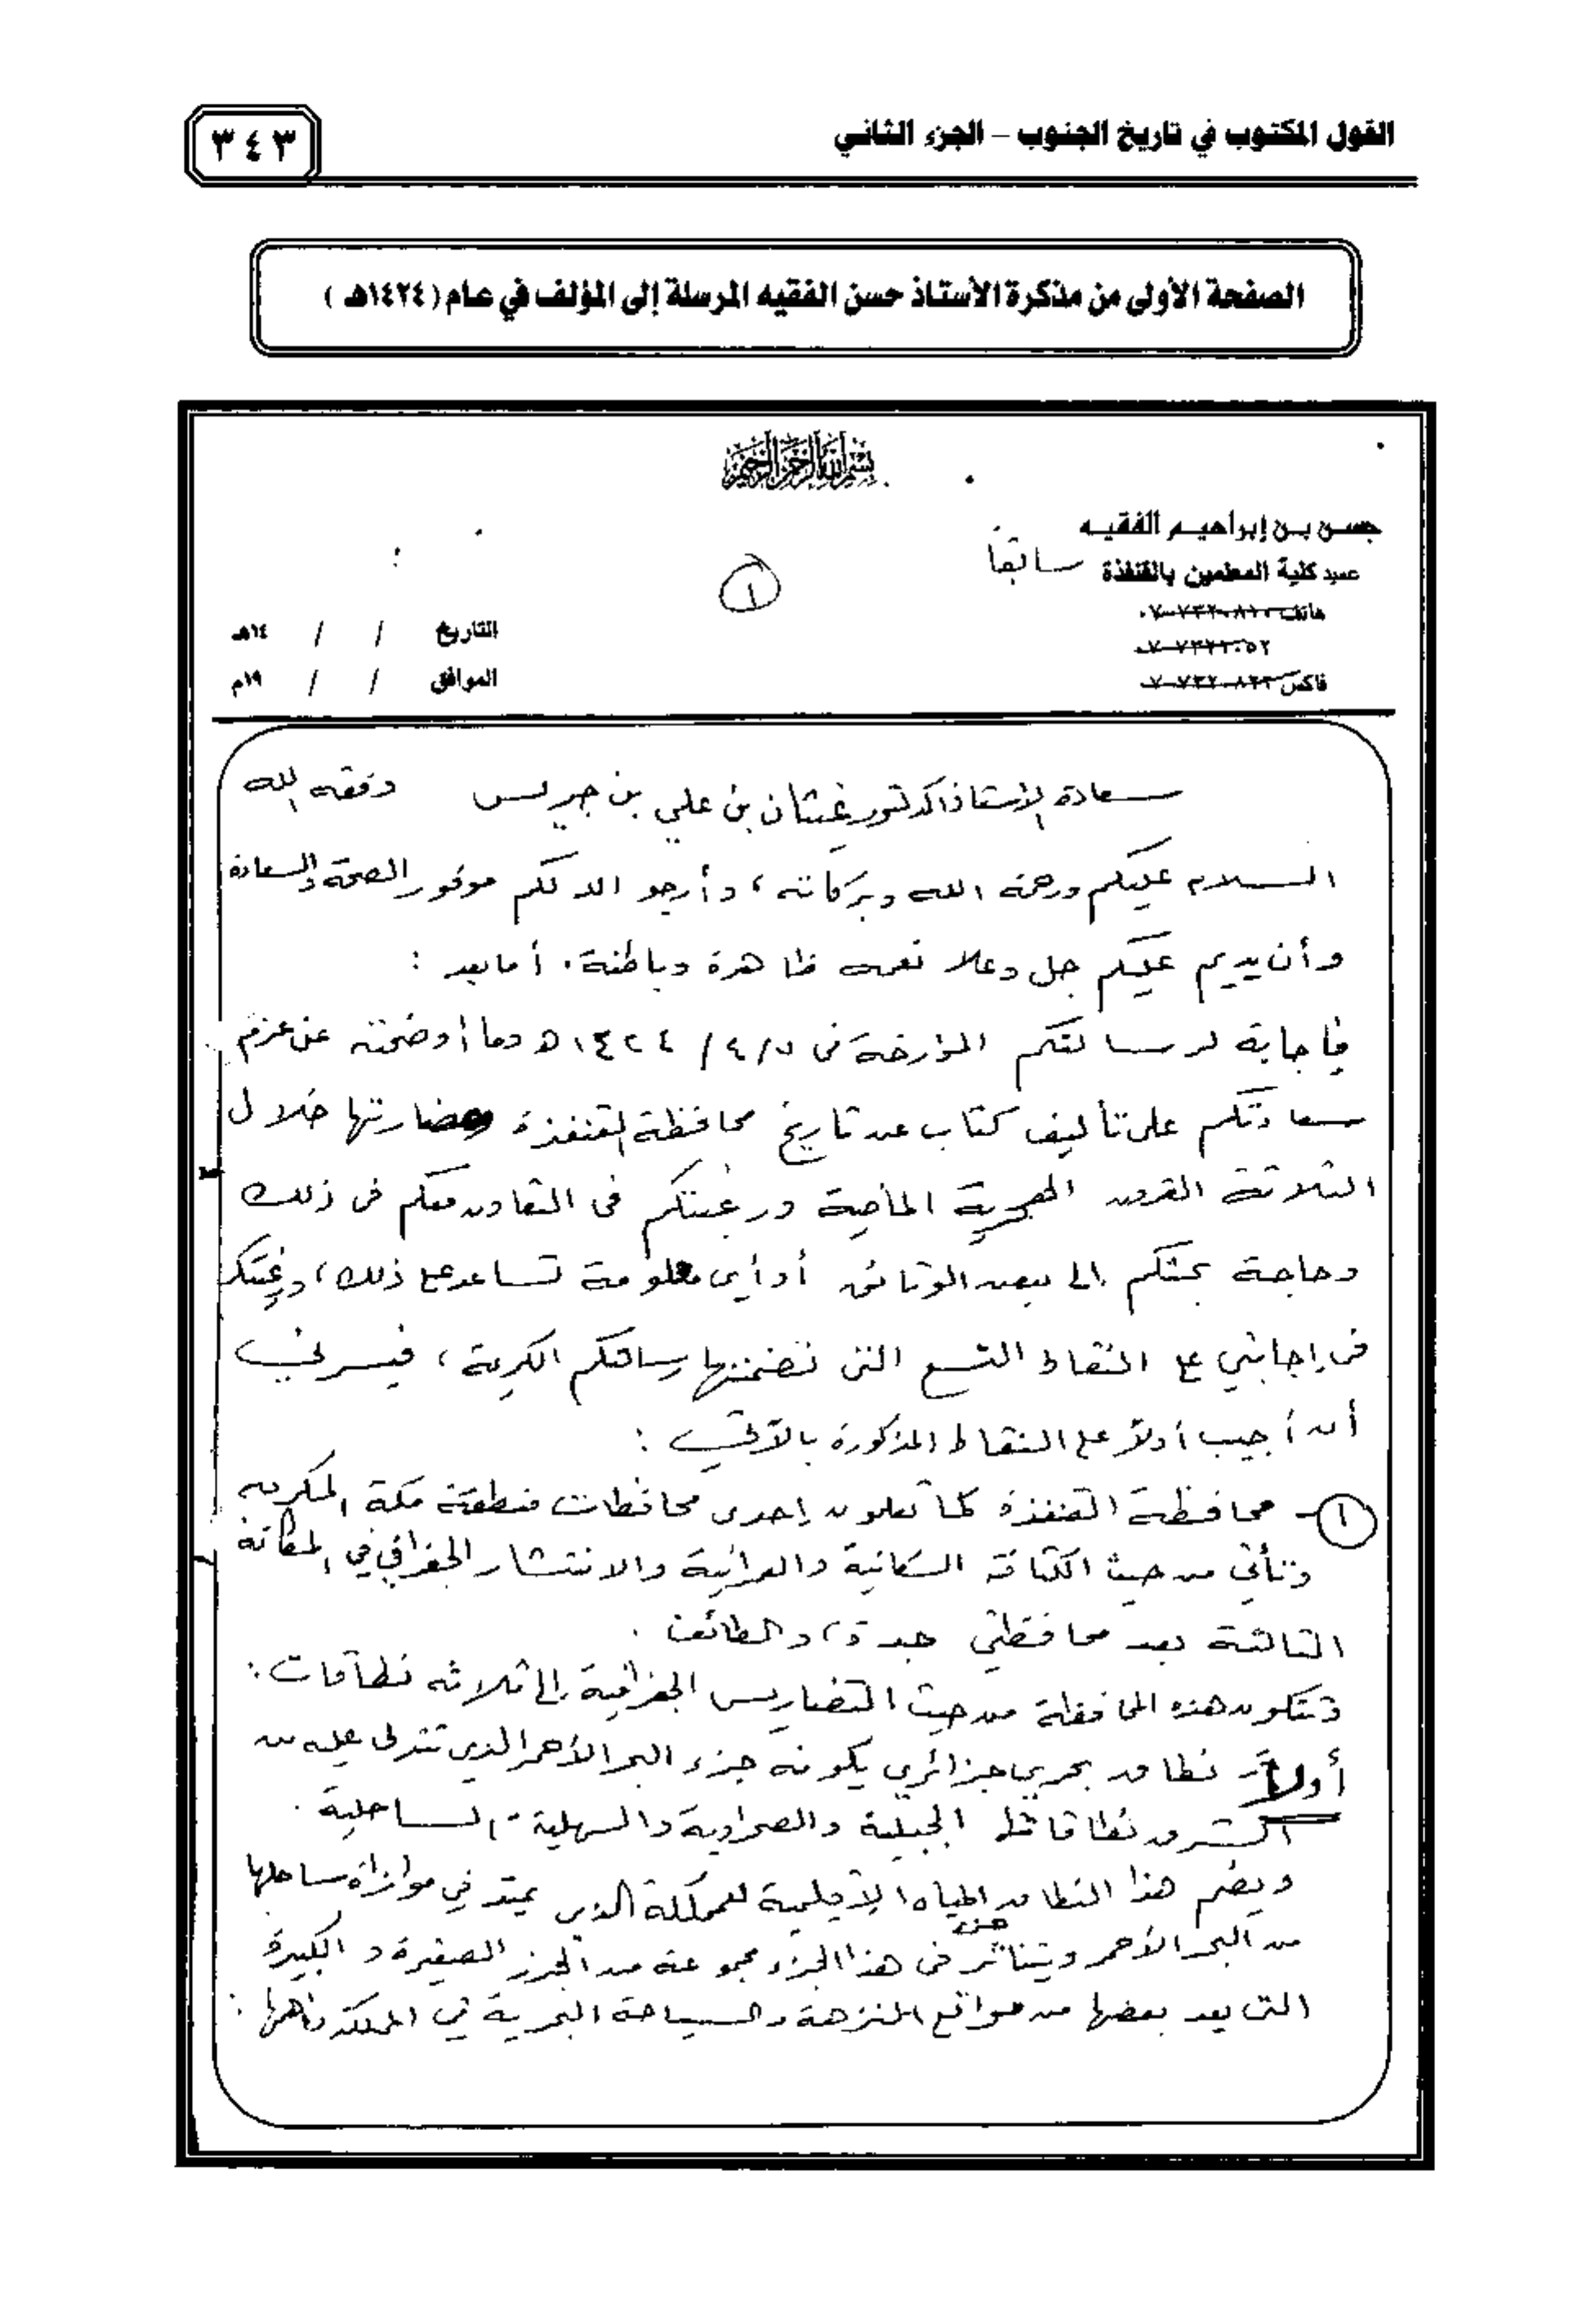 القول المكتوب في تاريخ الجنوب – الجزء الثاني
٣٤٣
الصفحة الأولى من مذكرة الأستاذ حسن الفقيه المرسلة إلى المؤلف في عام (١٤٢٤هـ)
بسم الله الرحمن الرحيم
حسن بن إبراهيم الفقيه
عميد كلية المعلمين بالقنفذة سابقاً
١
هاتف
فاكس
التاريخ / / ١٤هـ
الموافق / / ١٩م
سعادة الأستاذ الدكتور غيثان بن علي بن جريس وفقه الله
السلام عليكم ورحمة الله وبركاته، وأرجو الله لكم موفور الصحة والسعادة
وأن يديم عليكم جل وعلا نعمه ظاهرة وباطنة. أما بعد :
فإجابة لرسالتكم المؤرخة في ١٤٢٤/٤/٧هـ وما أوضحته عن عزم
سعادتكم على تأليف كتاب عن تاريخ محافظة القنفذة وحضارتها خلال
الثلاثة القرون الهجرية الماضية ورغبتكم في التعاون معكم في ذلك
وحاجة بحثكم إلى بعض الوثائق أو أي معلومة تساعد على ذلك، ورغبتكم
في إجابتي على النقاط التسع التي تضمنتها رسالتكم الكريمة، فيسرني
أن أجيب أولاً على النقاط المذكورة بالآتي :
١- محافظة القنفذة كما تعلمون إحدى محافظات منطقة مكة المكرمة
وتأتي من حيث الكثافة السكانية والعمرانية والانتشار الجغرافي في المكانة
الثالثة بعد محافظتي جدة، والطائف .
وتتكون هذه المحافظة من حيث التضاريس الجغرافية إلى ثلاثة نطاقات :
أولاً: نطاق بحري جزائري يكونه جزء البحر الأحمر الذي تتدلى عليه من
الشرق نطاقاتها الجبلية والصحراوية والسهلية الساحلية .
ويضم هذا النطاق المياه الإقليمية للمملكة الذي يمتد في موازاة ساحلها
من البحر الأحمر ويتناثر في هذا الجزء مجموعة من الجزر الصغيرة والكبيرة
التي يعد بعضها من مواقع النزهة والسياحة البحرية في المملكة وأهمها :